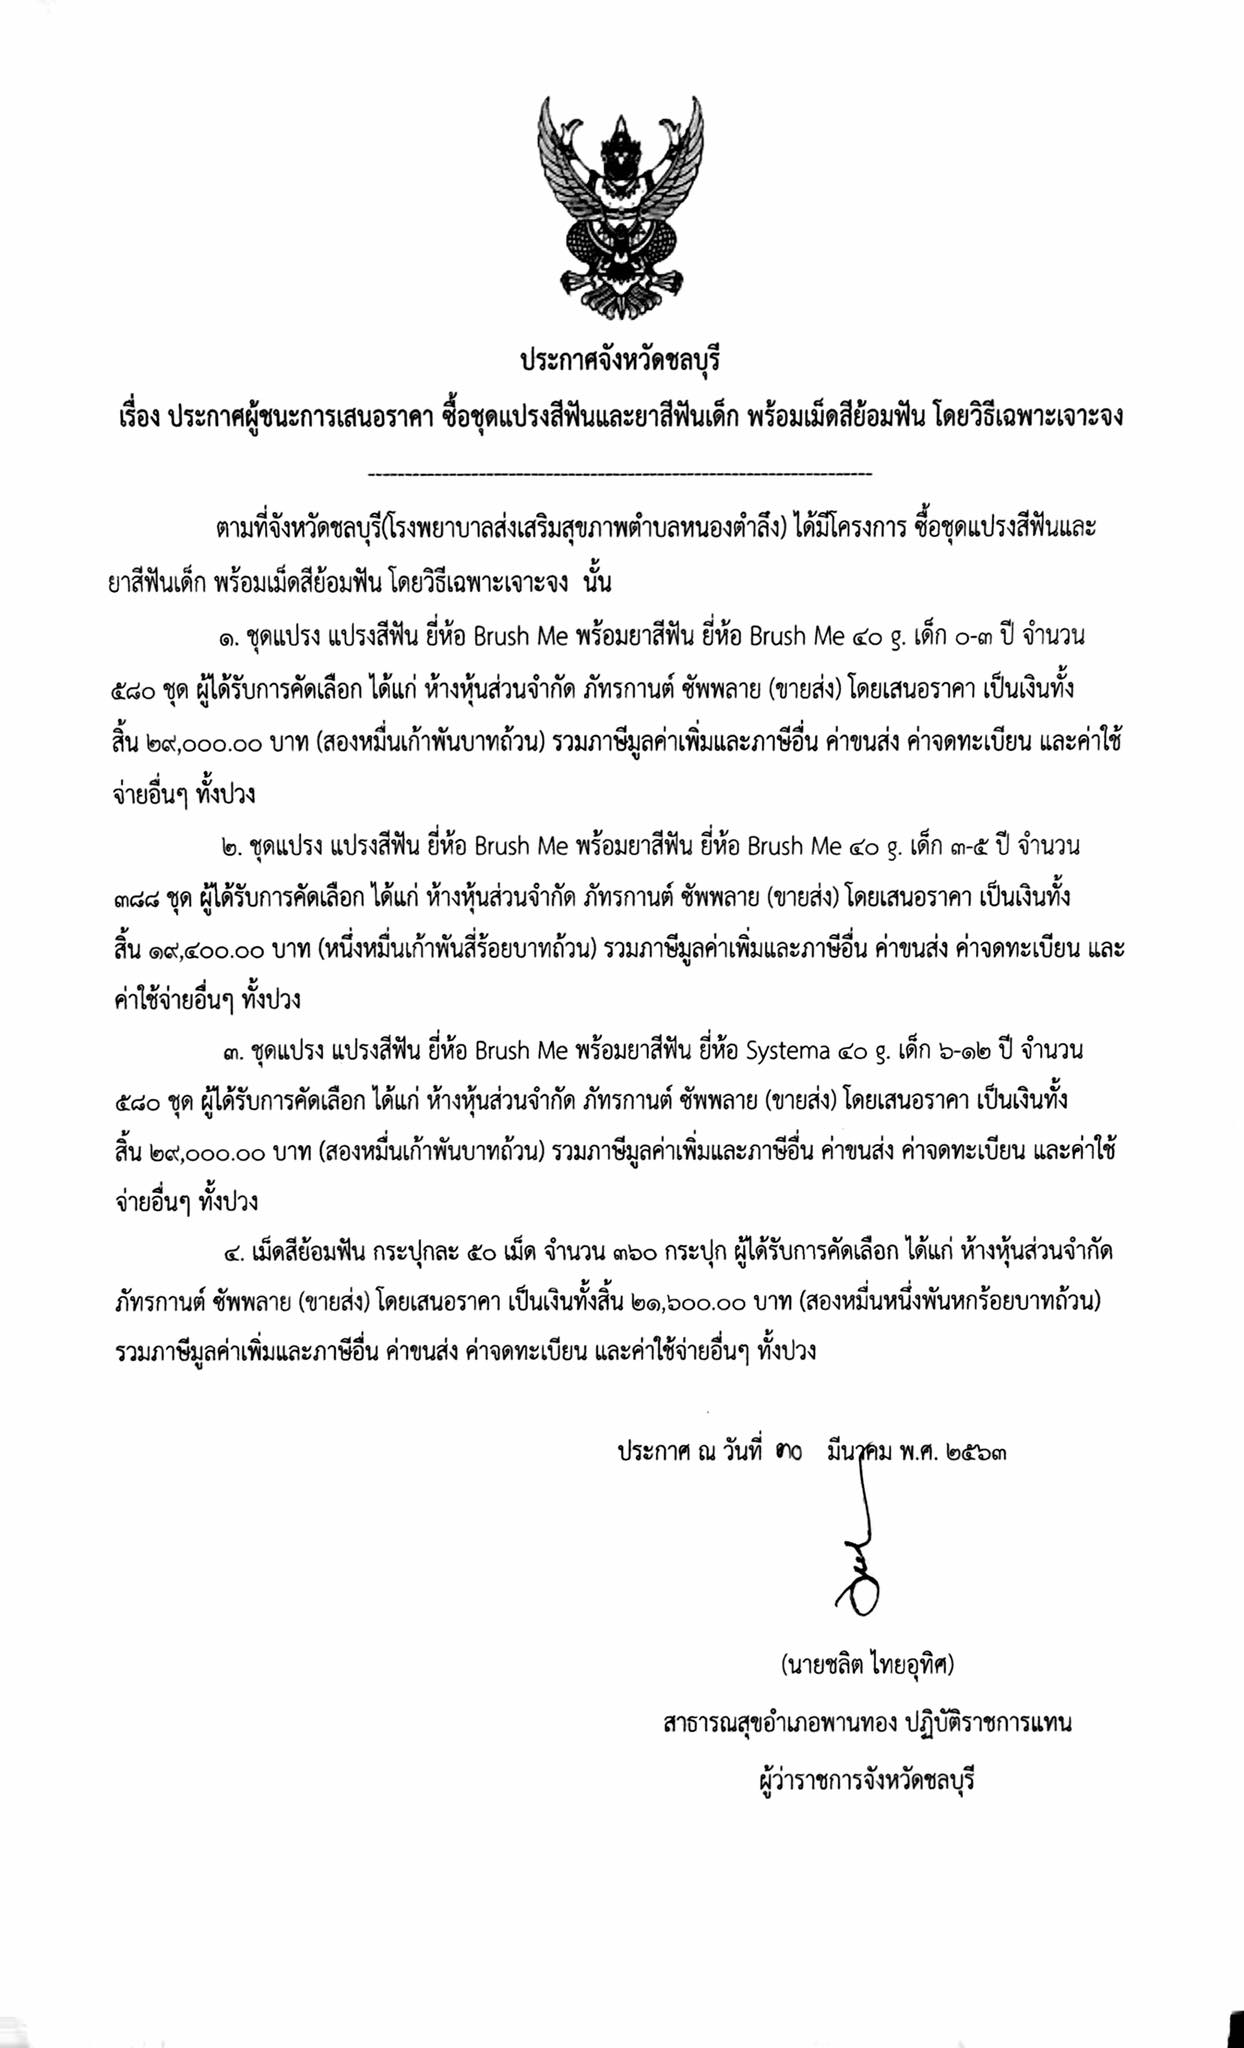 ประกาศจังหวัดชลบุรี
เรื่อง ประกาศผู้ชนะการเสนอราคา ซื้อชุดแปรงสีฟันและยาสีฟันเด็ก พร้อมเม็ดสีย้อมฟัน โดยวิธีเฉพาะเจาะจง
--------------------------------------------------------------------
ตามที่จังหวัดชลบุรี(โรงพยาบาลส่งเสริมสุขภาพตำบลหนองตำลึง) ได้มีโครงการ ซื้อชุดแปรงสีฟันและ
ยาสีฟันเด็ก พร้อมเม็ดสีย้อมฟัน โดยวิธีเฉพาะเจาะจง นั้น
๑. ชุดแปรง แปรงสีฟัน ยี่ห้อ Brush Me พร้อมยาสีฟัน ยี่ห้อ Brush Me ๔๐ g. เด็ก ๐-๓ ปี จำนวน
๕๘๐ ชุด ผู้ได้รับการคัดเลือก ได้แก่ ห้างหุ้นส่วนจำกัด ภัทรกานต์ ซัพพลาย (ขายส่ง) โดยเสนอราคา เป็นเงินทั้ง
สิ้น ๒๙,๐๐๐.๐๐ บาท (สองหมื่นเก้าพันบาทถ้วน) รวมภาษีมูลค่าเพิ่มและภาษีอื่น ค่าขนส่ง ค่าจดทะเบียน และค่าใช้
จ่ายอื่นๆ ทั้งปวง
๒. ชุดแปรง แปรงสีฟัน ยี่ห้อ Brush Me พร้อมยาสีฟัน ยี่ห้อ Brush Me ๔๐ g. เด็ก ๓-๕ ปี จำนวน
๓๘๘ ชุด ผู้ได้รับการคัดเลือก ได้แก่ ห้างหุ้นส่วนจำกัด ภัทรกานต์ ซัพพลาย (ขายส่ง) โดยเสนอราคา เป็นเงินทั้ง
สิ้น ๑๙,๔๐๐.๐๐ บาท (หนึ่งหมื่นเก้าพันสี่ร้อยบาทถ้วน) รวมภาษีมูลค่าเพิ่มและภาษีอื่น ค่าขนส่ง ค่าจดทะเบียน และ
ค่าใช้จ่ายอื่นๆ ทั้งปวง
๓. ชุดแปรง แปรงสีฟัน ยี่ห้อ Brush Me พร้อมยาสีฟัน ยี่ห้อ Systema ๔๐ g. เด็ก ๖-๑๒ ปี จำนวน
๕๘๐ ชุด ผู้ได้รับการคัดเลือก ได้แก่ ห้างหุ้นส่วนจำกัด ภัทรกานต์ ซัพพลาย (ขายส่ง) โดยเสนอราคา เป็นเงินทั้ง
สิ้น ๒๙,๐๐๐.๐๐ บาท (สองหมื่นเก้าพันบาทถ้วน) รวมภาษีมูลค่าเพิ่มและภาษีอื่น ค่าขนส่ง ค่าจดทะเบียน และค่าใช้
จ่ายอื่นๆ ทั้งปวง
๔. เม็ดสีย้อมฟัน กระปุกละ ๕๐ เม็ด จำนวน ๓๖๐ กระปุก ผู้ได้รับการคัดเลือก ได้แก่ ห้างหุ้นส่วนจำกัด
ภัทรกานต์ ซัพพลาย (ขายส่ง) โดยเสนอราคา เป็นเงินทั้งสิ้น ๒๑,๖๐๐.๐๐ บาท (สองหมื่นหนึ่งพันหกร้อยบาทถ้วน)
รวมภาษีมูลค่าเพิ่มและภาษีอื่น ค่าขนส่ง ค่าจดทะเบียน และค่าใช้จ่ายอื่นๆ ทั้งปวง
ประกาศ ณ วันที่ ๓๐ มีนาคม พ.ศ. ๒๕๖๓
(นายชลิต ไทยอุทิศ)
สาธารณสุขอำเภอพานทอง ปฏิบัติราชการแทน
ผู้ว่าราชการจังหวัดชลบุรี